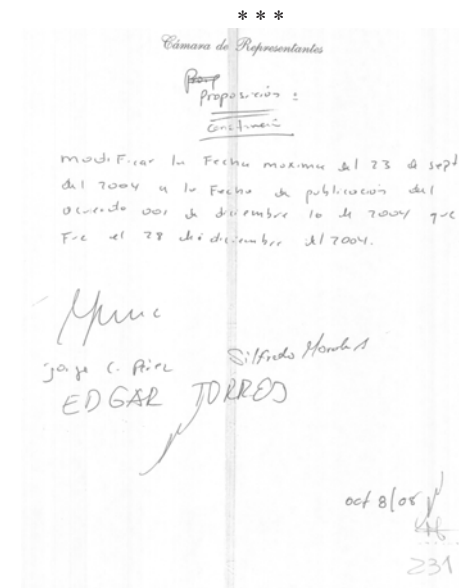 * * *
Cámara de Representantes
Prop
Proposición :
modificar la Fecha maxima del 23 de sept
del 2004 a la Fecha de publicacion del
acuerdo 001 de diciembre 10 de 2004 que
Fue el 28 de diciembre del 2004.
Jorge C.
Silfredo Morales
EDGAR TORRES
oct 8/08
231